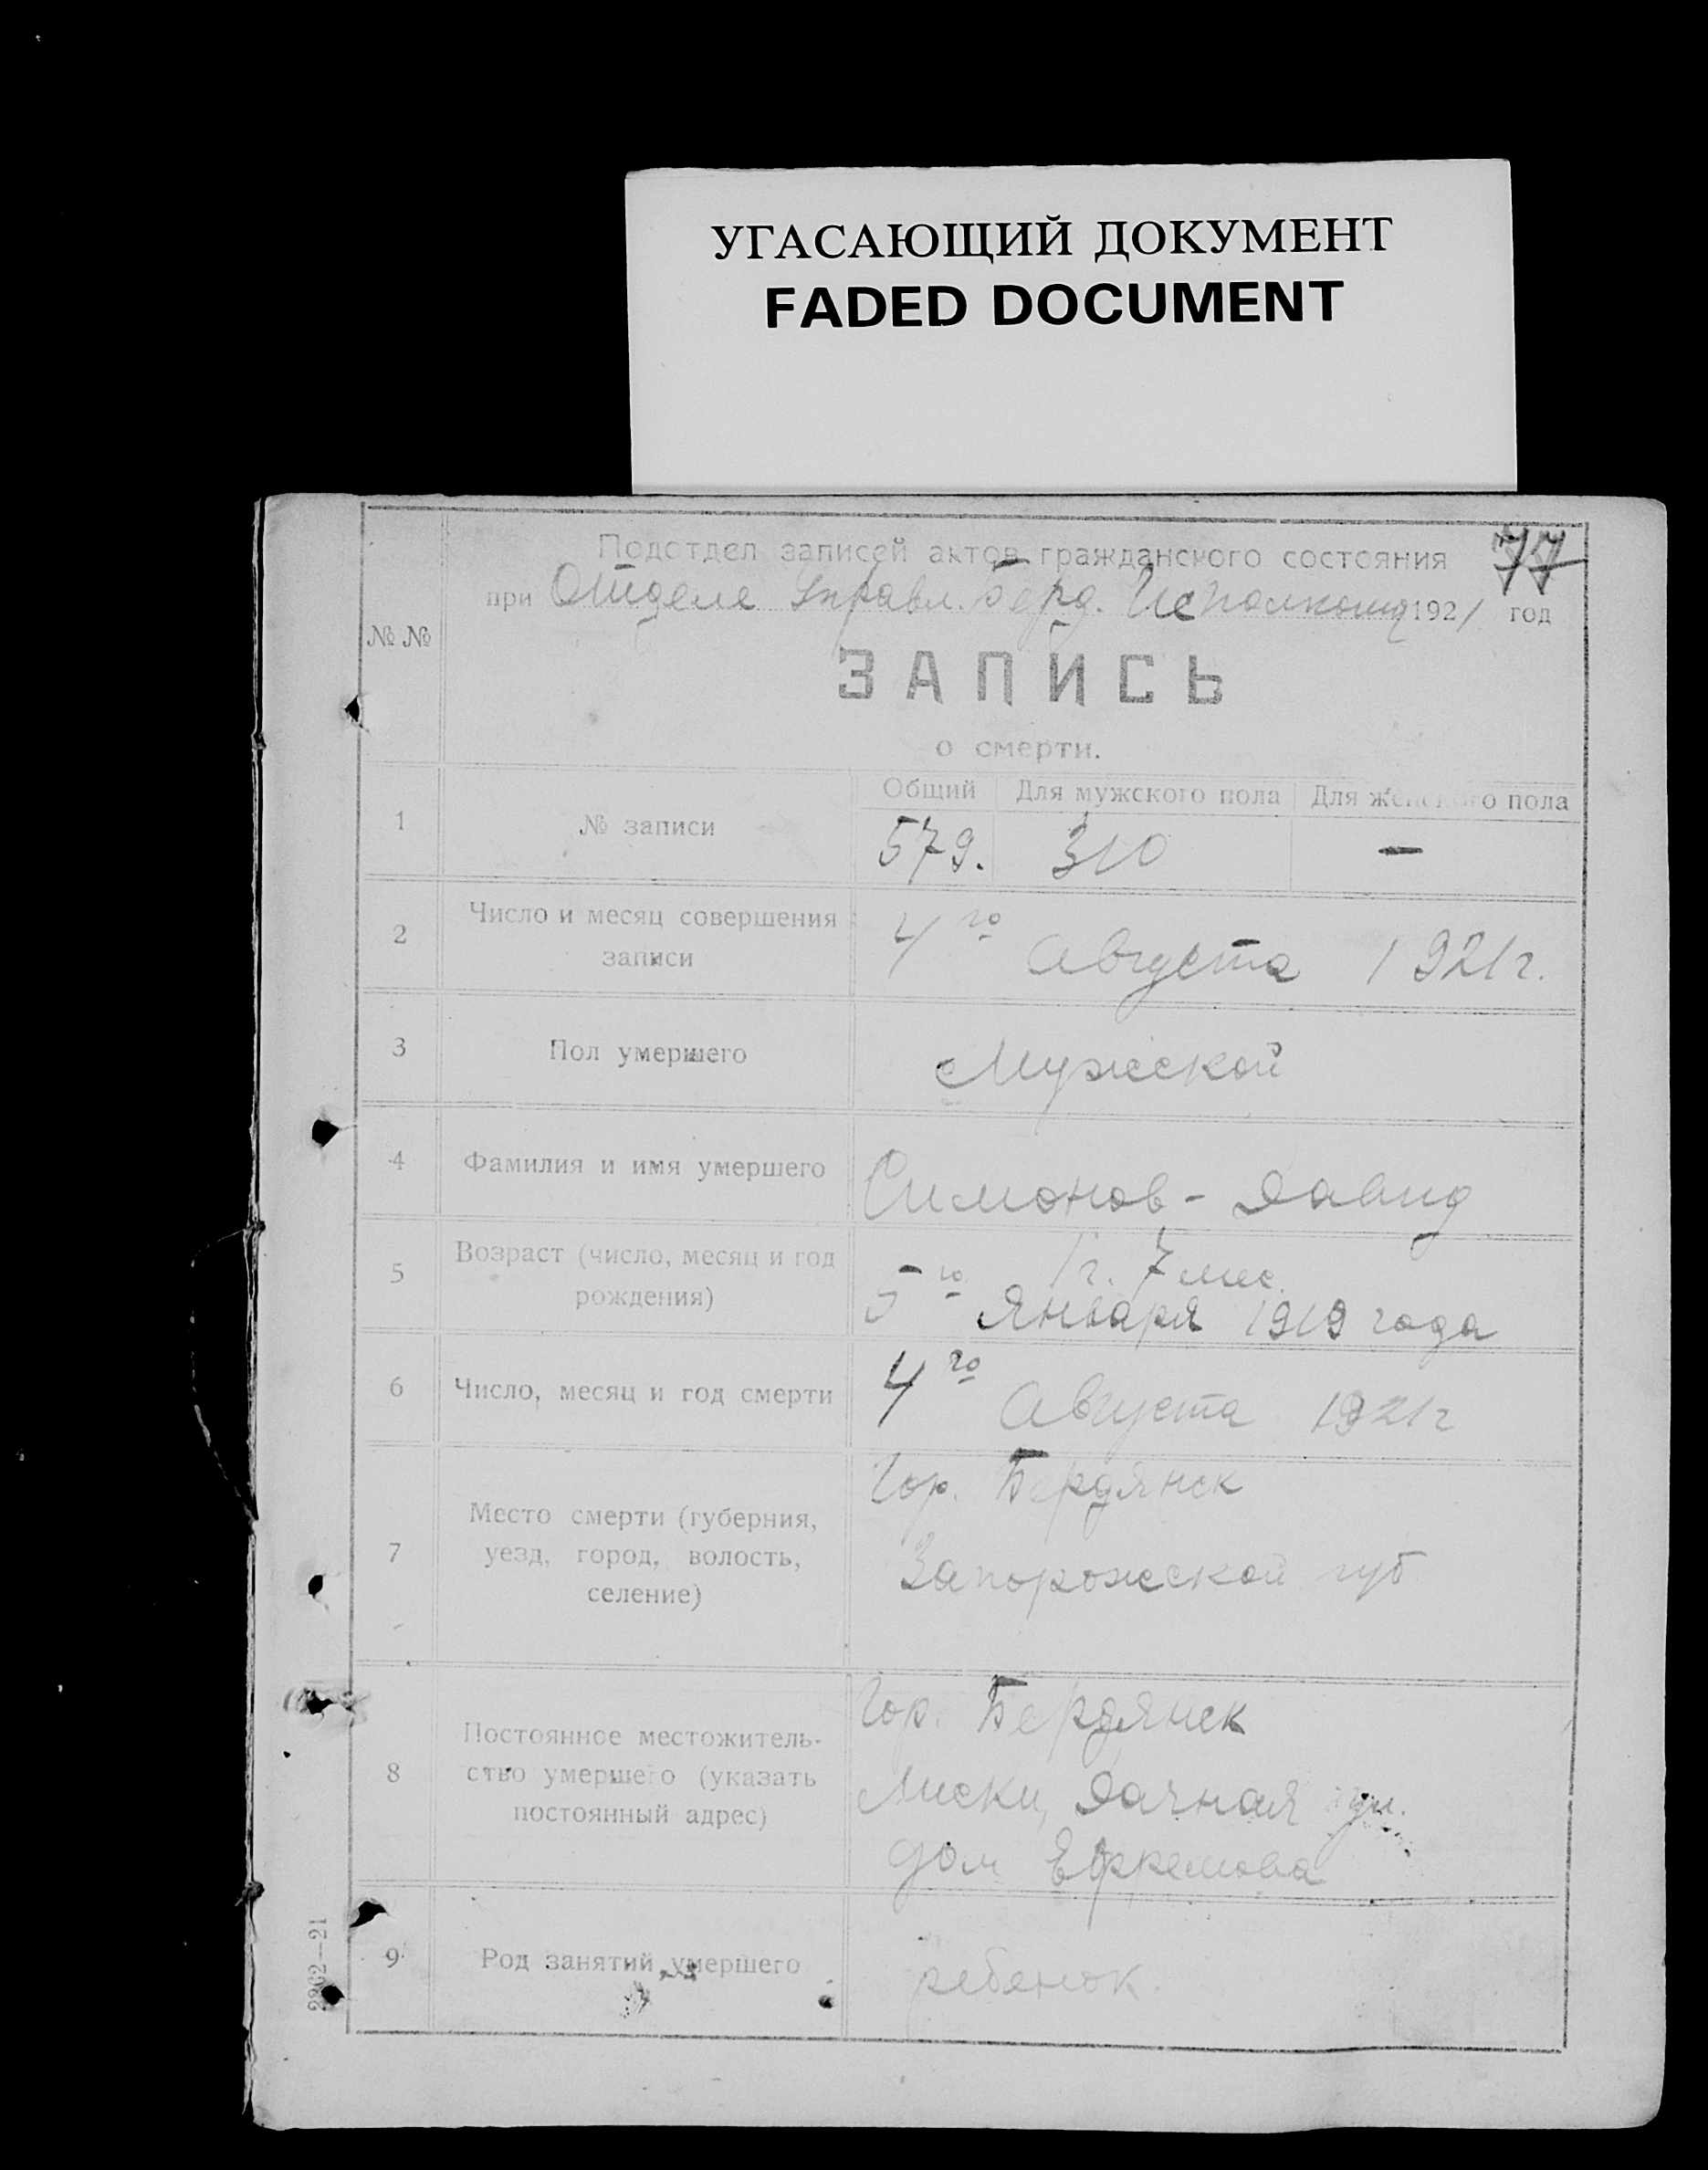 УГАСАЮЩИЙ ДОКУМЕНТ
FADED DOCUMENT
77
Подотдел записей актов гражданского состояния
при Отделе Управл. Берд. Исполкома 1921 год
№ №
ЗАПИСЬ
о смерти.
Общий Для мужского пола Для женского пола
1 № записи 579. 310 —
2 Число и месяц совершения записи 4го Августа 1921г.
3 Пол умершего Мужской
4 Фамилия и имя умершего Симонов - Давид
5 Возраст (число, месяц и год рождения) 1г. 7 мес.
5го Января 1919 года
6 Число, месяц и год смерти 4го Августа 1921г
7 Место смерти (губерния, уезд, город, волость, селение) Гор. Бердянск
Запорожской губ
8 Постоянное местожитель-
ство умершего (указать
постоянный адрес)
Гор. Бердянск
Лиски, Дачная ул.
дом Ефремова
9 Род занятий умершего ребенок.
2362—21